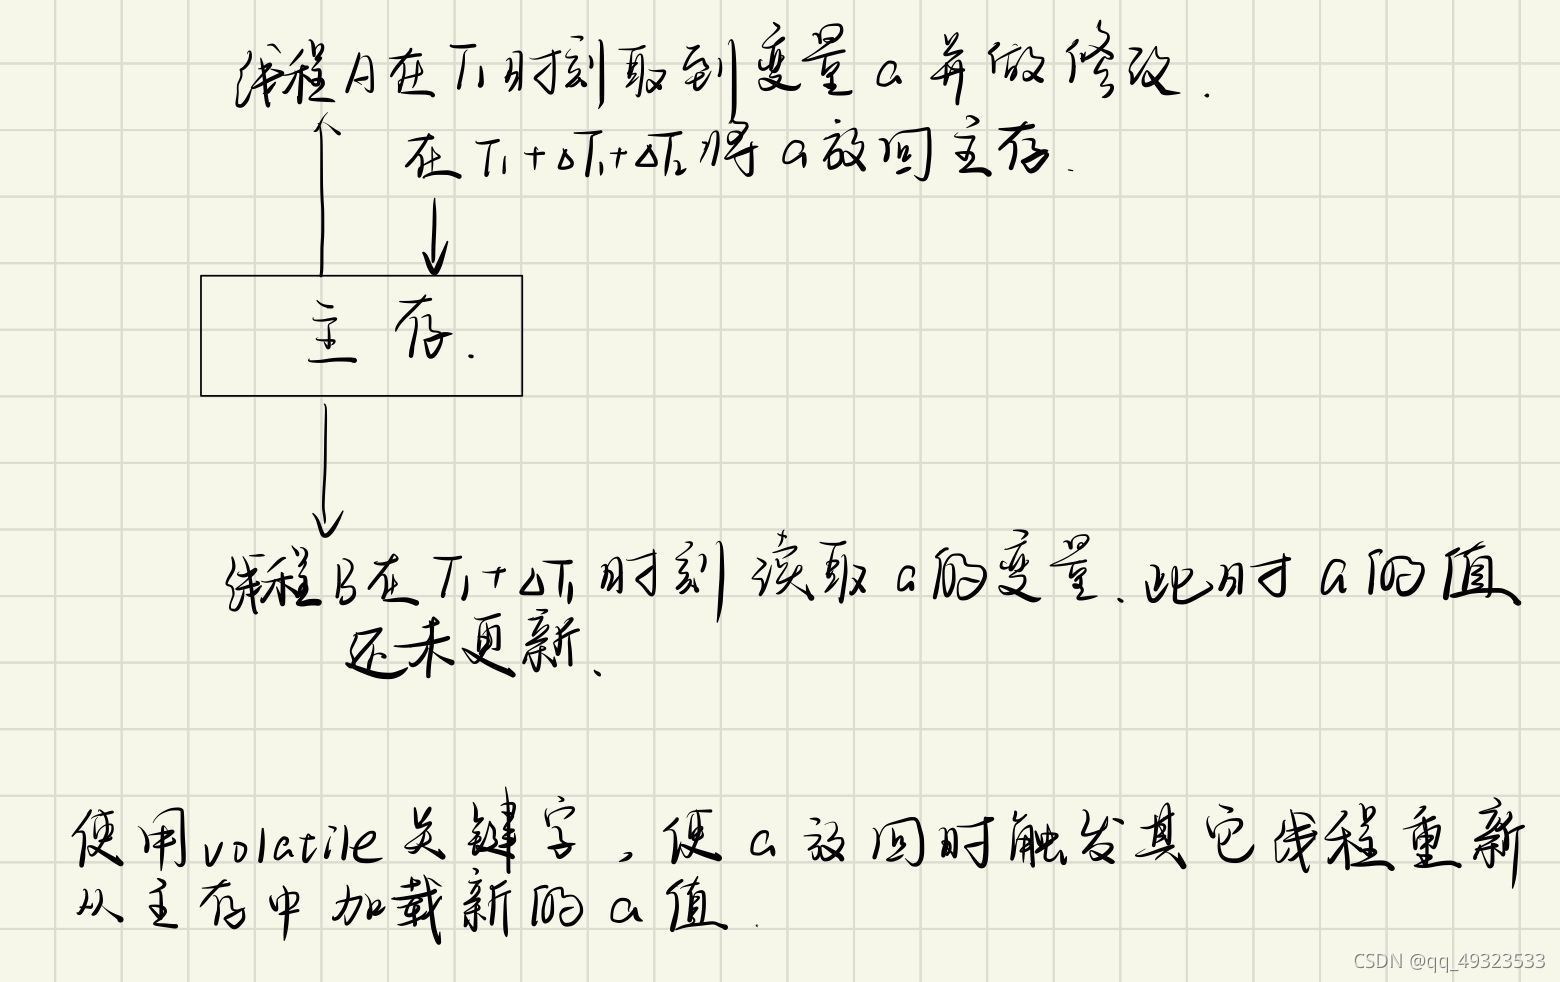 线程A在T1时刻取到变量a并做修改.
在T1+△T1+△T2将a放回主存.
主存.
线程B在T1+△T1时刻读取a的变量.此时a的值
还未更新.
使用volatile关键字,使a放回时触发其它线程重新
从主存中加载新的a值.
CSDN @qq_49323533